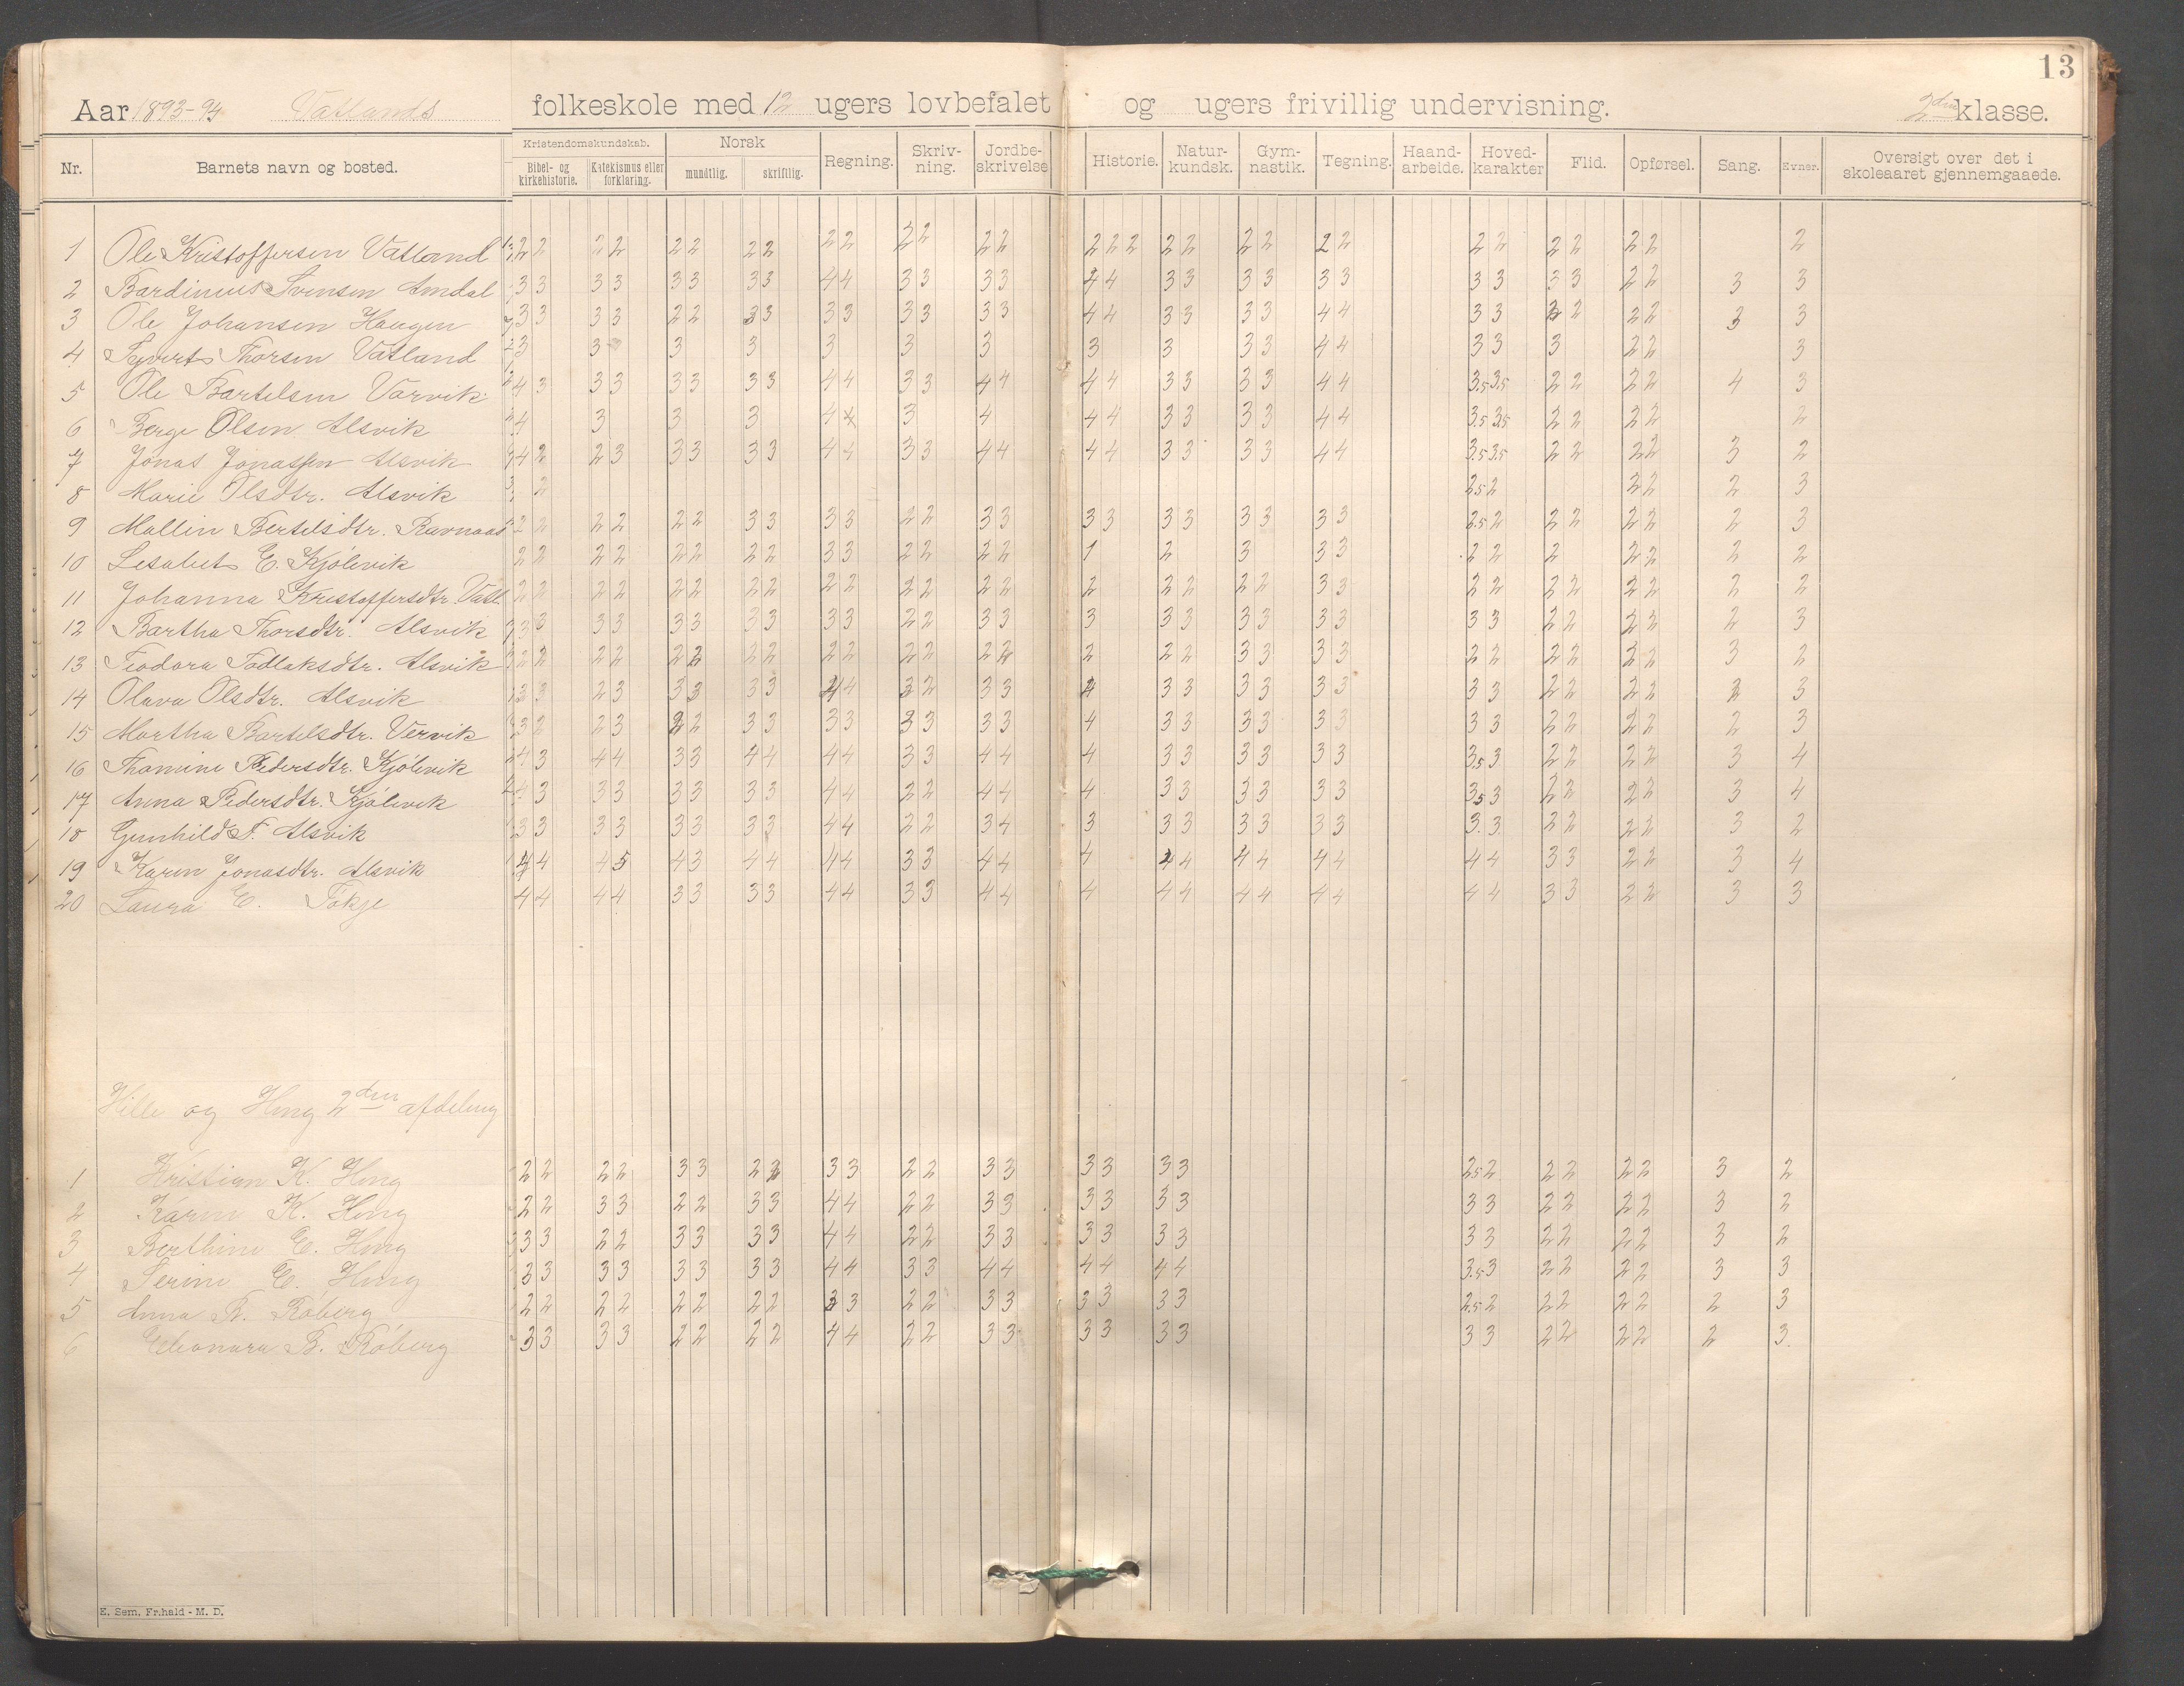 13
Aar 1893-94 Vatlands folkeskole med 12 ugers lovbefalet og ugers frivillig undervisning. 2den klasse.
Nr. Barnets navn og bosted. Kristendomskundskab. Bibel- og kirkehistorie. Katekismus eller forklaring. Norsk mundtlig. skriftlig. Regning. Skriv-ning. Jordbe-skrivelse Historie. Natur-kundsk. Gym-nastik. Tegning. Haand-arbeide. Hoved-karakter Flid. Opførsel. Sang. Evner. Oversigt over det i skoleaaret gjennemgaaede.
1 Ole Kristoffersen Vatland 2 2 2 2 2 2 2 2 2 2 2 2 2 2 2 2 2 2 2 2 2 2 2 2 2 2 2 2 2 2 2
2 Bardinius Svensen Amdal 3 3 3 3 3 3 3 3 4 4 3 3 3 3 4 4 3 3 3 3 3 3 3 3 3 3 2 2 3 3
3 Ole Johansen Haugen 3 3 3 3 2 2 3 3 3 3 3 3 3 3 4 4 3 3 3 3 4 4 3 3 2 2 2 2 3 3
4 Thorsen Vatland 3 3 3 3 3 3 3 3 3 3 3 4 4 3 3 3 2 2 3
5 Ole Bartelsen Varvik 4 3 3 3 3 3 3 3 4 4 3 3 4 4 4 4 3 3 3 3 4 4 3.5 3.5 2 2 2 2 4 3
6 Berge Olsen Alsvik 4 3 3 3 4 x 3 4 4 4 3 3 3 3 4 4 3.5 3.5 2 2 2 2 2
7 Jonas Jonassen Alsvik 4 2 2 3 3 3 3 3 4 4 3 3 4 4 4 4 3 3 3 3 4 4 3.5 3.5 2 2 2 2 3 2
8 Marie Olsdtr. Alsvik 2 2.5 2 2 2 2 3
9 Mallin Bertelsdtr. Ravnaas 2 2 2 2 2 2 3 3 3 3 2 2 3 3 3 3 3 3 3 3 3 3 2.5 2 2 2 2 2 2 3
10 Lesabet E. Kjølevik 2 2 2 2 2 2 2 2 3 3 2 2 2 2 1 2 3 3 3 2 2 2 2 2 2 2
11 Johanna Kristoffersdtr. Vatl. 2 2 2 2 2 2 2 2 2 2 2 2 2 2 2 2 2 2 2 3 3 2 2 2 2 2 2 2 2
12 Bartha Thorsdtr. Alsvik 3 3 3 3 3 3 3 3 3 3 2 2 3 3 3 3 3 3 3 3 3 3 3 2 2 2 2 2 3
13 Teodora Tollaksdtr. Alsvik 2 2 2 2 2 2 2 2 2 2 2 2 2 2 2 2 2 3 3 3 3 2 2 2 2 2 2 3 2
14 Olava Olsdtr. Alsvik 3 3 2 3 3 3 3 3 4 4 3 2 3 3 4 3 3 3 3 3 3 3 3 2 2 2 2 2 3
15 Martha Bartelsdtr. Vervik 3 2 2 3 2 2 3 3 3 3 3 3 3 3 4 3 3 3 3 3 3 3 3 2 2 2 2 2 3
16 Thomine Pedersdtr. Kjølevik 4 3 4 4 3 3 4 4 4 4 3 3 4 4 4 3 3 3 3 3 3 3.5 3 2 2 2 2 3 4
17 Anna Pedersdtr. Kjølevik 4 3 3 3 3 3 3 3 4 4 2 2 4 4 4 3 3 3 3 3 3 3.5 3 2 2 2 2 3 4
18 Gunhild T. Alsvik 3 3 3 3 3 3 3 3 4 4 2 2 3 4 3 3 3 3 3 3 3 3. 3. 2 2 2 2 3 2
19 Karen Jonasdtr. Alsvik 4 4 4 5 4 3 4 4 4 4 3 3 4 4 4 4 4 4 4 4 4 4 4 3 3 2 2 3 4
20 Laura E. Tökje 4 4 4 4 3 3 3 3 4 4 3 3 4 4 4 4 4 4 4 4 4 4 4 3 3 2 2 3 3
Hille og Hing 2den afdeling
1 Kristian K. Hing 2 2 2 2 3 3 2 2 3 3 2 2 3 3 3 3 3 3 2.5 2 2 2 2 2 3 2
2 Karen K. Hing 2 2 3 3 2 2 3 3 4 4 2 2 3 3 3 3 3 3 3 3 2 2 2 2 3 2
3 Berthine E. Hing 3 3 2 2 3 3 3 3 4 4 2 2 3 3 3 3 3 3 3 3 2 2 2 2 3 2
4 Serine E. Hing 3 3 3 3 3 3 3 3 4 4 3 3 4 4 4 4 4 4 3.5 3 2 2 2 2 3 3
5 Anna B. Röberg 2 2 2 2 2 2 2 2 3 3 2 2 3 3 3 3 3 3 2.5 2 2 2 2 2 2 3
6 Eleonora B. Röberg 3 3 3 3 2 2 2 2 4 4 2 2 3 3 3 3 3 3 3 3 2 2 2 2 2 3.
E. Sem, Fr.hald - M. D.